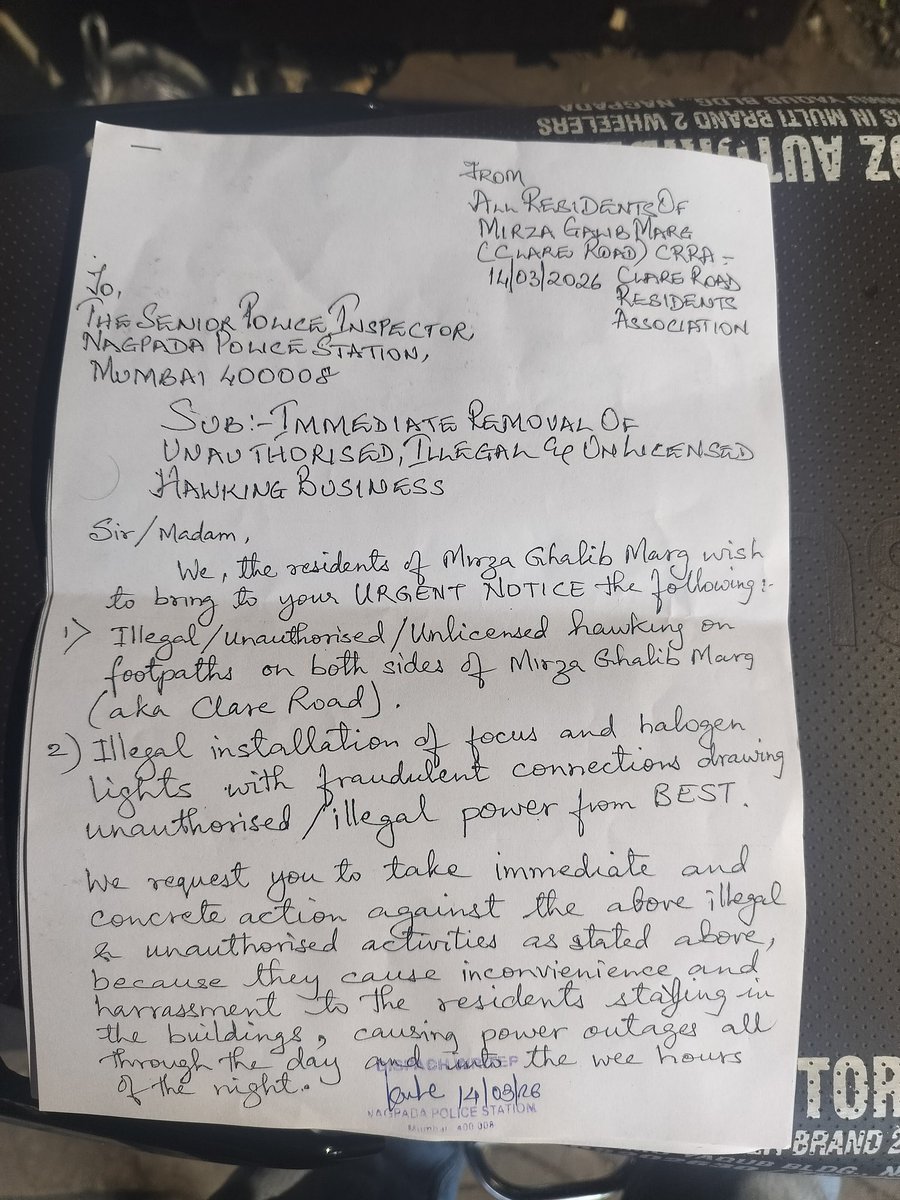 FROM
ALL RESIDENTS OF
MIRZA GALIB MARG
(CLARE ROAD) CRRA -
14/03/2026 CLARE ROAD
RESIDENTS
ASSOCIATION
To,
THE SENIOR POLICE INSPECTOR,
NAGPADA POLICE STATION,
MUMBAI 400008
SUB:- IMMEDIATE REMOVAL OF
UNAUTHORISED, ILLEGAL & UNLICENSED
HAWKING BUSINESS
Sir/Madam,
We, the residents of Mirza Ghalib Marg wish
to bring to your URGENT NOTICE the following:-
1) Illegal/unauthorised/Unlicensed hawking on
footpaths on both sides of Mirza Ghalib Marg
(aka Clare Road).
2) Illegal installation of focus and halogen
lights with fraudulent connections drawing
unauthorised/illegal power from BEST.
We request you to take immediate and
concrete action against the above illegal
& unauthorised activities as stated above,
because they cause inconvienience and
harrassment to the residents staying in
the buildings, causing power outages all
through the day and into the wee hours
of the night.
14/03/26
NAGPADA POLICE STATION
Mumbai 400 008
S IN MULTI BRAND 2 WHEELERS
YAQUB BLDG. NAGPADA
OZ AUT
TOR
BRAND 2